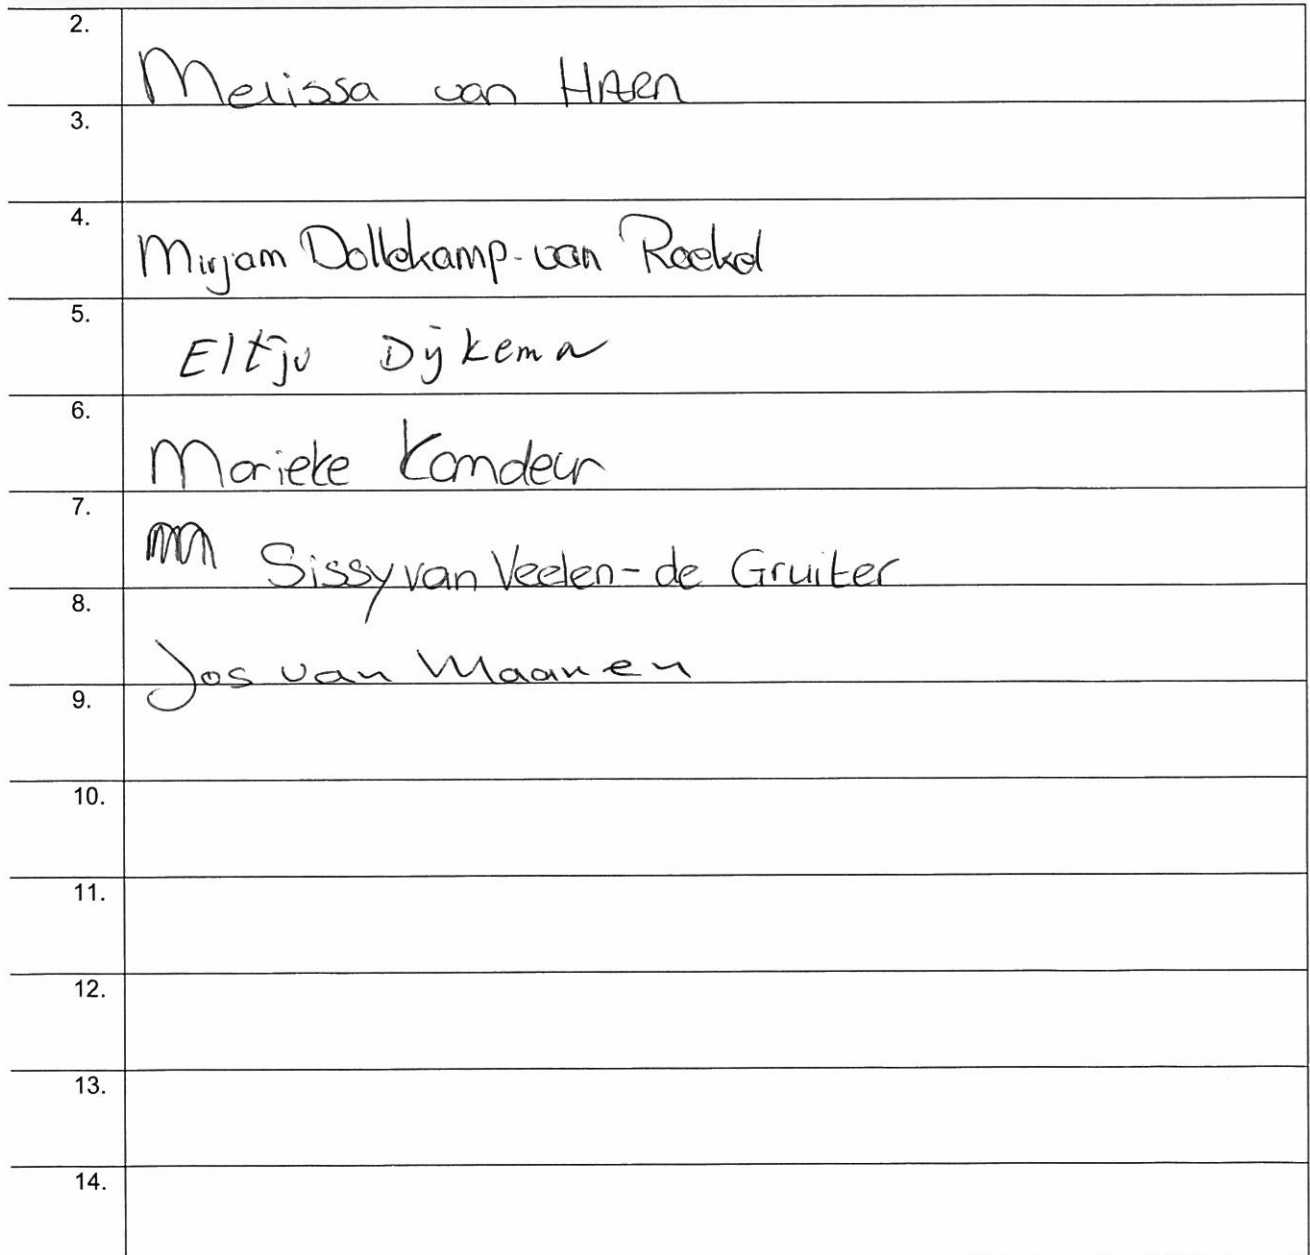 2.
Melissa van HAren
3.
4.
Mirjam Dollekamp-van Roekel
5.
Eltjo Dijkema
6.
Marieke Kamdeur
7.
Sissy van Veelen-de Gruiter
8.
Jos van Maanen
9.
10.
11.
12.
13.
14.